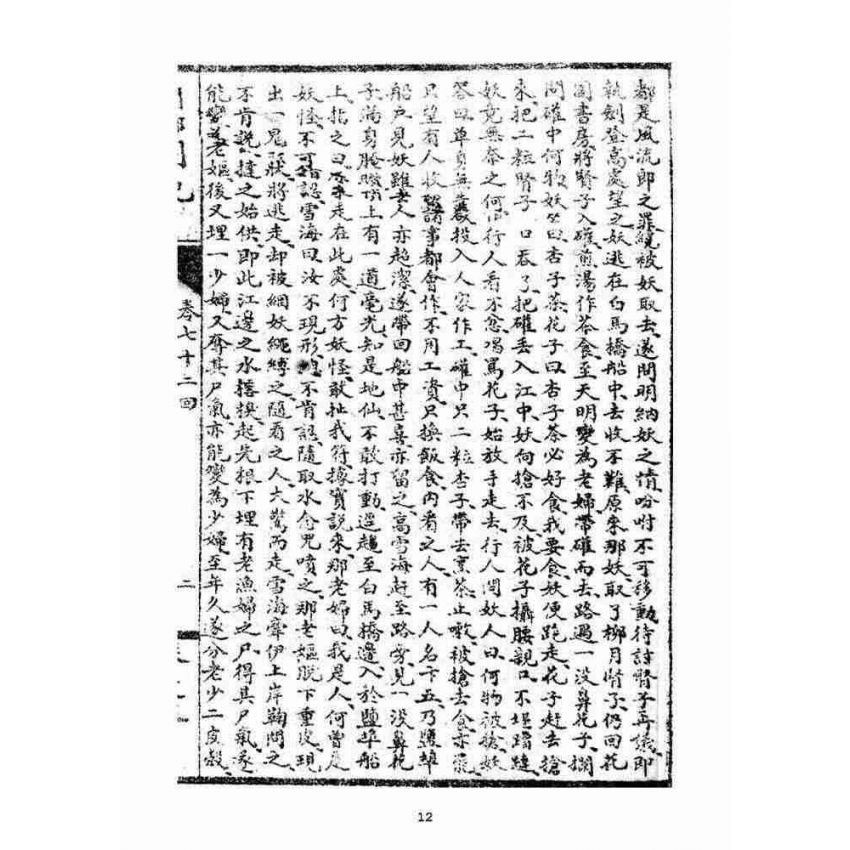 都是風流郎之罪繞被妖取去遂問明納妖之情吩咐不可移動待討腎子再議即
執劍登高處望之妖逃在白馬橋船中去收不難原來那妖取了柳月腎子仍回花
園書房將腎子入確煎湯作茶食至天明變為老婦帶確而去路遇一没鼻花子攔
問確中何物妖答曰杏子茶花子曰杏子茶必好食我要食妖便跑走花子赶去搶
來把二粒腎子一口吞了把確丢入江中妖向搶不及被花子攝腰親口不堪蹧蹥
妖竟無奈之何行人看不愈喝罵花子始放手走去行人問妖人曰何物被搶妖
答曰单身無投入人家作工確中只二粒杏子帶去烹茶止嗽被搶去食
只望有人收諸事都會作不用工資只換飯食内看之人有一人名卞五乃鹽埠
船户見妖雖老人亦超潔遂帶回船中甚喜亦留之高雪海赶至路旁見一没鼻花
子滿身腌臢頂上有一道毫光知是地仙不敢打動逕趨至白馬橋邊入於鹽埠船
上指之曰走在此處何方妖怪敢扯我符據實説來那老婦曰我是人何曾是
妖怪不可錯認雪海曰汝不現形不肯認隨取水念咒噴之那老嫗脱下重皮現
出一鬼狀將逃走却被綑妖繩縛之隨看之人大驚而走雪海牽伊上岸鞠問之
不肯説撻之始供即此江邊之水撻換起先根下埋有老漁婦之尸得其尸氣遂
能變老嫗後又埋一少婦又奪其尸氣亦能變為少婦至年久遂分老少二皮殼
卷七十二回
二
12